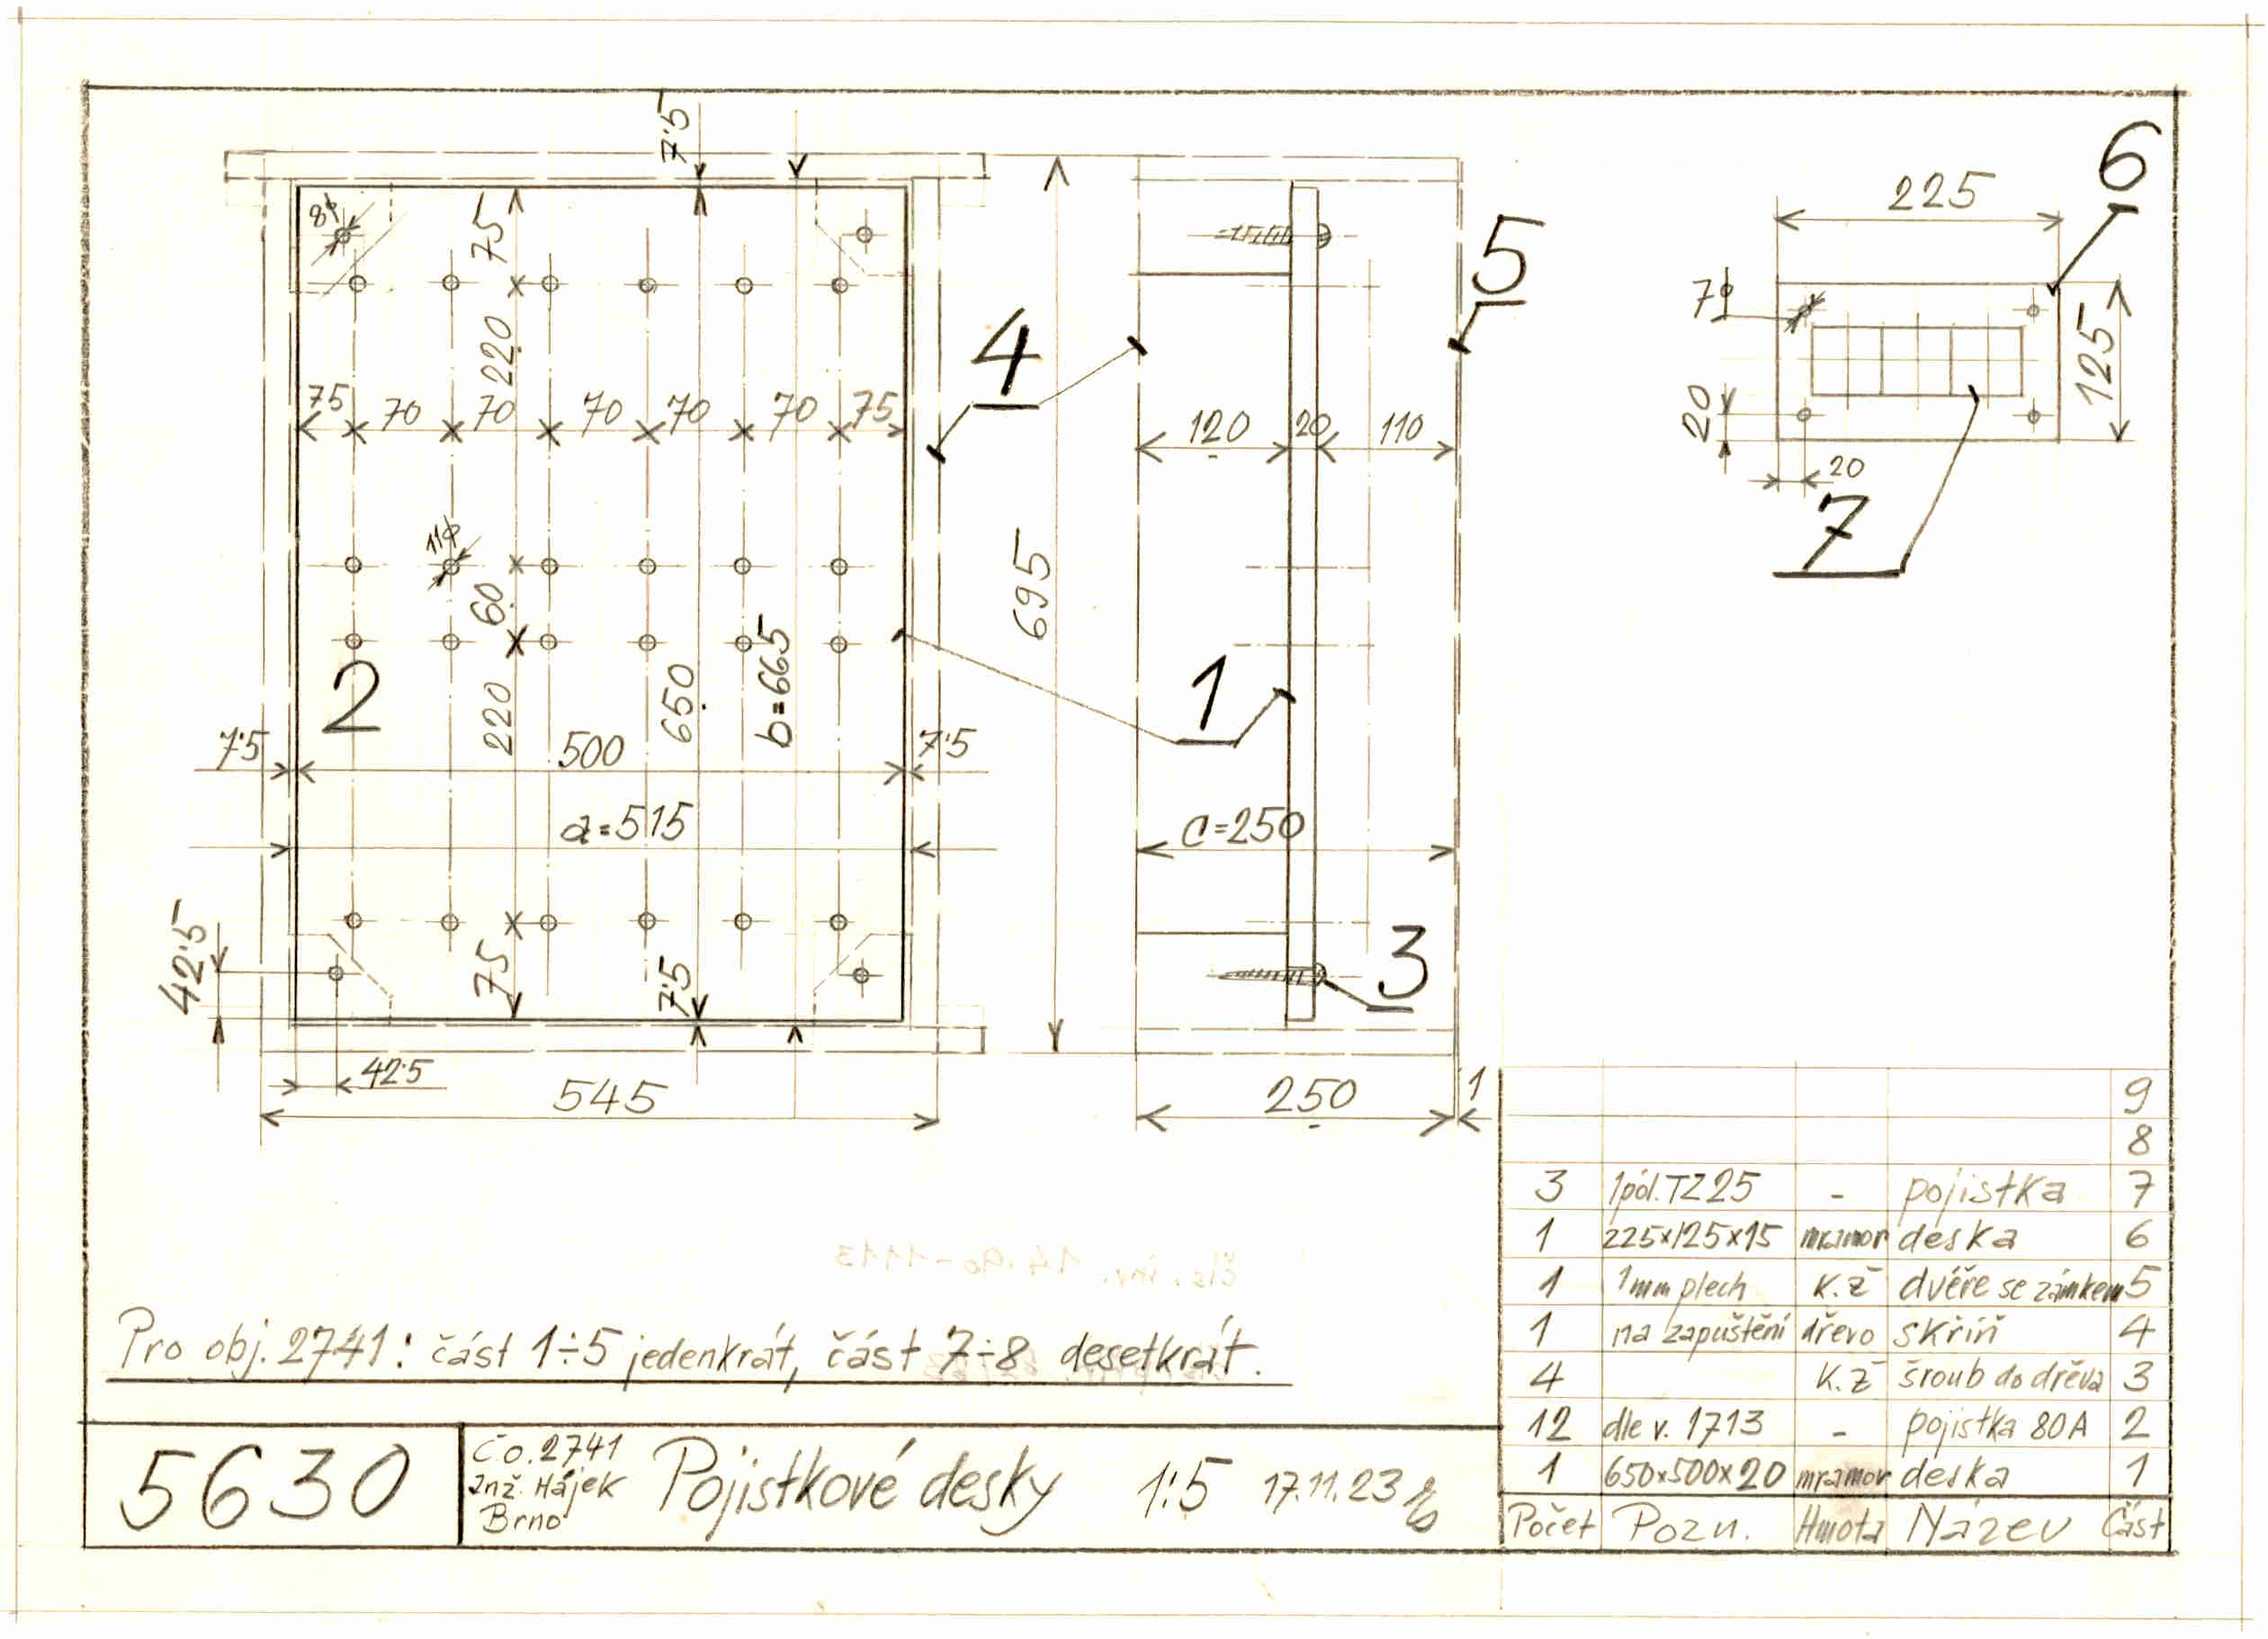 7·5
8φ
75
220
75 70 70 70 70 70 75
11φ
60
2
220
650
b=665
7·5 500 7·5
a=515
42·5
75
7·5
42·5
545
695
4
5
120 20 110
1
c=250
3
250 1
6
225
7φ
125
20
20
7
9
8
3 1pól. TZ 25 - pojistka 7
1 225x125x15 mramor deska 6
1 1mm plech K.ž dvéře se zámkem 5
1 na zapuštění dřevo skříň 4
4 K.ž šroub do dřeva 3
12 dle v. 1713 - pojistka 80A 2
1 650x500x20 mramor deska 1
Počet Pozn. Hmota Název Část
čís. inv. 14.90-1113
Pro obj. 2741: část 1÷5 jedenkrát, část 7÷8 desetkrát.
5630
Č.O. 2741
Inž. Hájek
Brno
Pojistkové desky 1:5 17.11.23